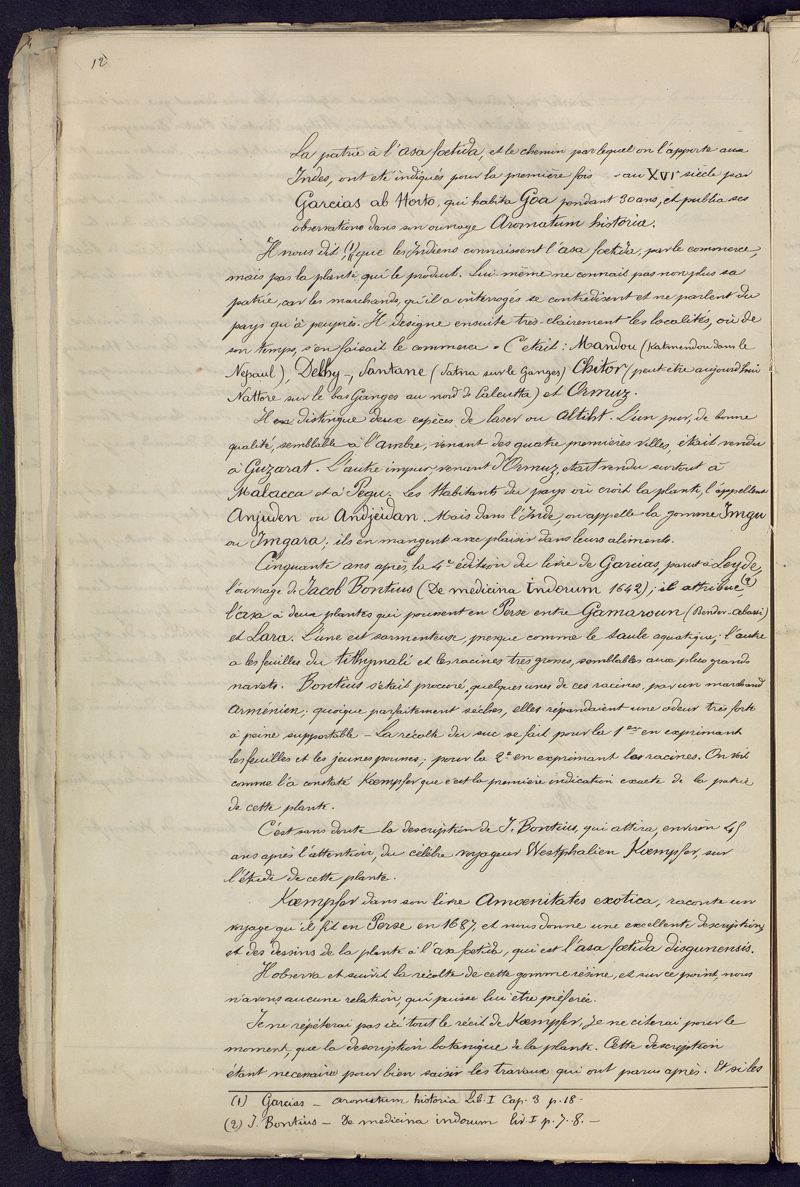 12
La patrie à l'asa fœtida, et le chemin par lequel on l'apporte aux
Indes, ont été indiqués pour la première fois au XVI siècle par
Garcias ab Horto, qui habita Goa pendant 30 ans, et publia ses
observations dans son ouvrage Aromatum historia.
Il nous dit, (1) que les Indiens connaissent l'asa fœtida, par le commerce,
mais pas la plante qui le produit. Lui même ne connait pas non plus sa
patrie, car les marchands, qu'il a interrogés se contredisent et ne parlent du
pays qu'à peu près. Il désigne ensuite très-clairement les localités, où de
son temps, s'en faisait le commerce. C'était : Mandou (Katmendou dans le
Nepaul), Delhy -, Santane (Satna sur le Ganges) Chitor (peut être aujourd'hui
Nattore sur le bas Ganges au nord de Calcutta) et Ormuz.
Il distingue deux espèces de laser ou Altiht. L'un pur, de bonne
qualité, semblable à l'ambre, venant des quatre premières villes, était vendu
à Guzarat. L'autre impur, venant d'Ormuz, était vendu surtout à
Malacca et à Pegu. Les Habitants du pays où croit la plante, l'appellent
Anjuden ou Andjeidan. Mais dans l'Inde, on appelle la gomme Imgu
ou Imgara ; ils en mangent avec plaisir dans leurs aliments.
Cinquante ans après, la 4e édition du livre de Garcias, parut à Leyde,
l'ouvrage de Jacob Bontius (De medicina Indorum 1642) ; il attribue (2)
l'asa à deux plantes qui poussent en Perse entre Gamaroun (Bender-abassi)
et Lara. L'une est sarmenteuse, presque comme le saule aquatique ; l'autre
a les feuilles du tithymali et les racines très grosses, semblables aux plus grands
navets. Bontius s'était procuré, quelques unes de ces racines, par un marchand
arménien ; quoique parfaitement sèches, elles répandaient une odeur très forte
à peine supportable - La récolte du suc se fait pour la 1ère en exprimant
les feuilles et les jeunes pousses ; pour la 2e en exprimant les racines. On voit
comme l'a constaté Kœmpfer que c'est la première indication exacte de la patrie
de cette plante.
C'est sans doute la description de J. Bontius, qui attira, environ 45
ans après l'attention, du célèbre voyageur Westphalien Kœmpfer, sur
l'étude de cette plante.
Kœmpfer dans son livre Amœnitates exotica, raconte un
voyage qu'il fit en Perse en 1687, et nous donne une excellente description,
et des dessins de la plante à l'asa fœtida, qui est l'asa fœtida disgunensis.
Il observa et suivit la récolte de cette gomme résine, et sur ce point, nous
n'avons aucune relation, qui puisse lui être préférée.
Je ne répéterai pas ici tout le récit de Kœmpfer, je ne citerai pour le
moment, que la description botanique de la plante. Cette description
étant nécessaire pour bien saisir les travaux qui ont parus après. Et si les
(1) Garcias - aromatum historia Lib. I Cap. 3 p. 18 -
(2) J. Bontius - De medicina indorum liv. I p. 7-8. -